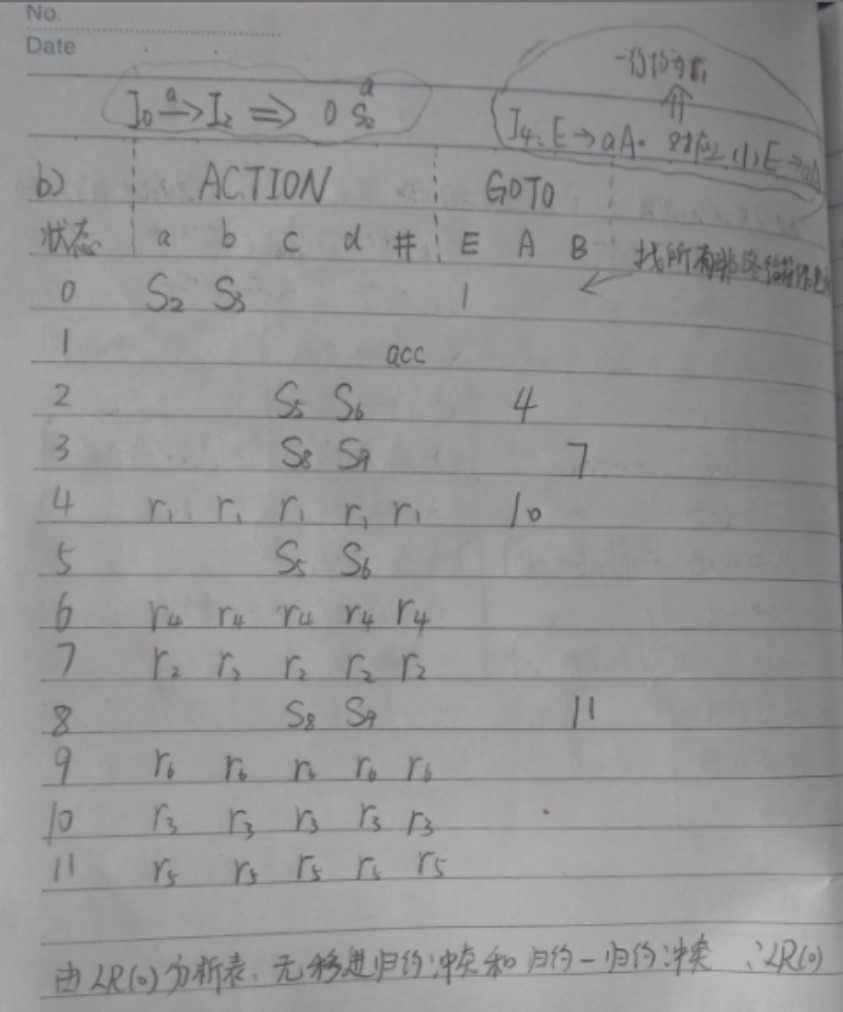 No.
Date
I₀ →a I₂ ⇒ 0 S₂ a
一归约为r₁
⇑
I₄: E→aA· 对应(1)E→aA
b) ACTION GOTO
状态 a b c d # E A B
找所有非终结符
0 S₂ S₃ 1
1 acc
2 S₅ S₆ 4
3 S₈ S₉ 7
4 r₁ r₁ r₁ r₁ r₁ 10
5 S₅ S₆
6 r₄ r₄ r₄ r₄ r₄
7 r₂ r₂ r₂ r₂ r₂
8 S₈ S₉ 11
9 r₆ r₆ r₆ r₆ r₆
10 r₃ r₃ r₃ r₃ r₃
11 r₅ r₅ r₅ r₅ r₅
由LR(0)分析表,无移进归约冲突和归约-归约冲突 ∴LR(0)